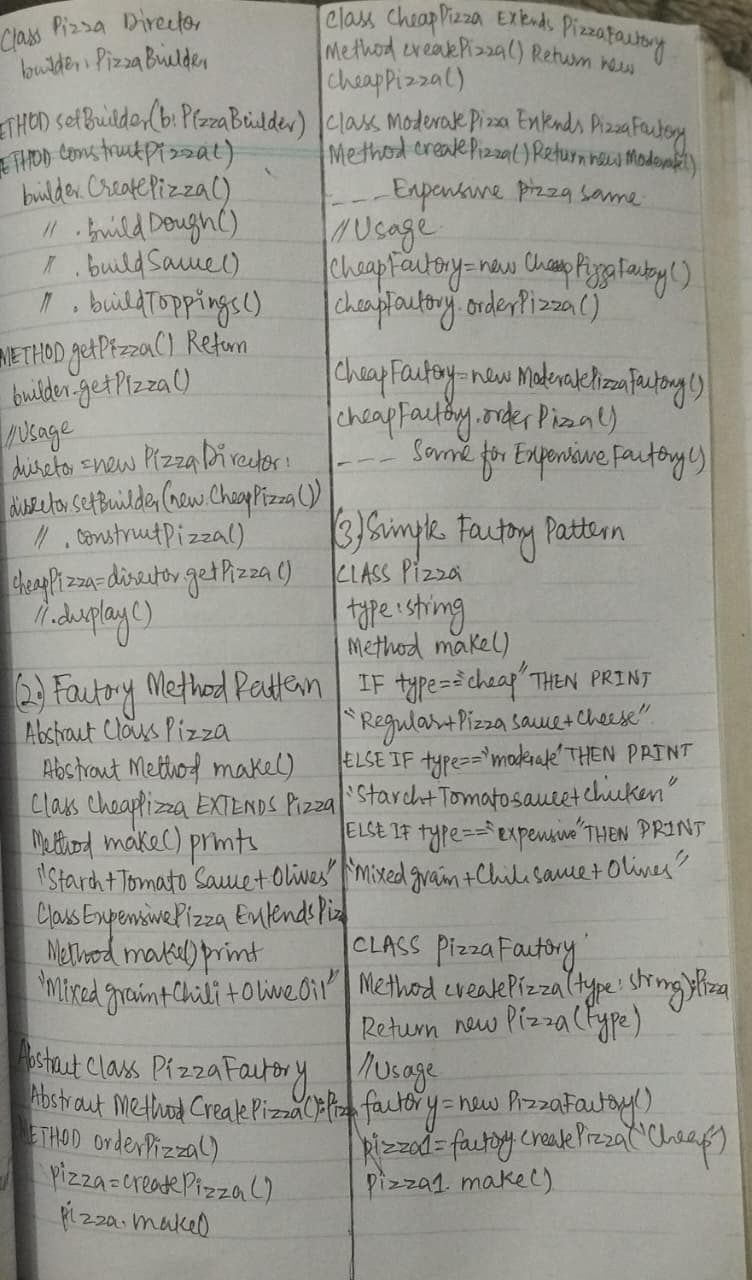 Class Pizza Director
builder: PizzaBuilder
ETHOD setBuilder(b: PizzaBuilder)
ETHOD constructPizza()
builder.CreatePizza()
〃 .buildDough()
〃 .buildSauce()
〃 .buildToppings()
METHOD getPizza() Return
builder.getPizza()
//Usage
director = new PizzaDirector:
director.setBuilder(new CheapPizza())
〃 .constructPizza()
cheapPizza=director.getPizza()
〃.display()
(2.) Factory Method Pattern
Abstract Class Pizza
Abstract Method make()
Class CheapPizza EXTENDS Pizza
Method make() prints
"Starch+Tomato Sauce+Olives"
Class ExpensivePizza Extends Piz
Method make() print
"Mixed grain+Chili+Olive Oil"
Abstract Class PizzaFactory
Abstract Method CreatePizza():Pizz
METHOD orderPizza()
pizza=createPizza()
pizza.make()
Class CheapPizza Extends PizzaFactory
Method creatPizza() Return new
CheapPizza()
Class ModeratePizza Extends PizzaFactory
Method createPizza() Return new Moderate()
---- Expensive pizza same
//Usage
CheapFactory=new CheapPizzaFactoy()
cheapFactory.orderPizza()
CheapFactory=new ModeratePizzaFactory()
cheapFactory.orderPizza()
---- Same for ExpensiveFactory()
(3) Simple Factory Pattern
CLASS Pizza
type: string
Method make()
IF type=="cheap" THEN PRINT
"Regular+Pizza sauce+cheese"
ELSE IF type=="moderate" THEN PRINT
"Starch+Tomatosauce+chicken"
ELSE IF type=="expensive" THEN PRINT
"Mixed grain+Chili sauce+Olives"
CLASS PizzaFactory
Method createPizza(type: string):Pizza
Return new Pizza(type)
//Usage
factory=new PizzaFactory()
pizza1=factory.createPizza("Cheap")
Pizza1.make()